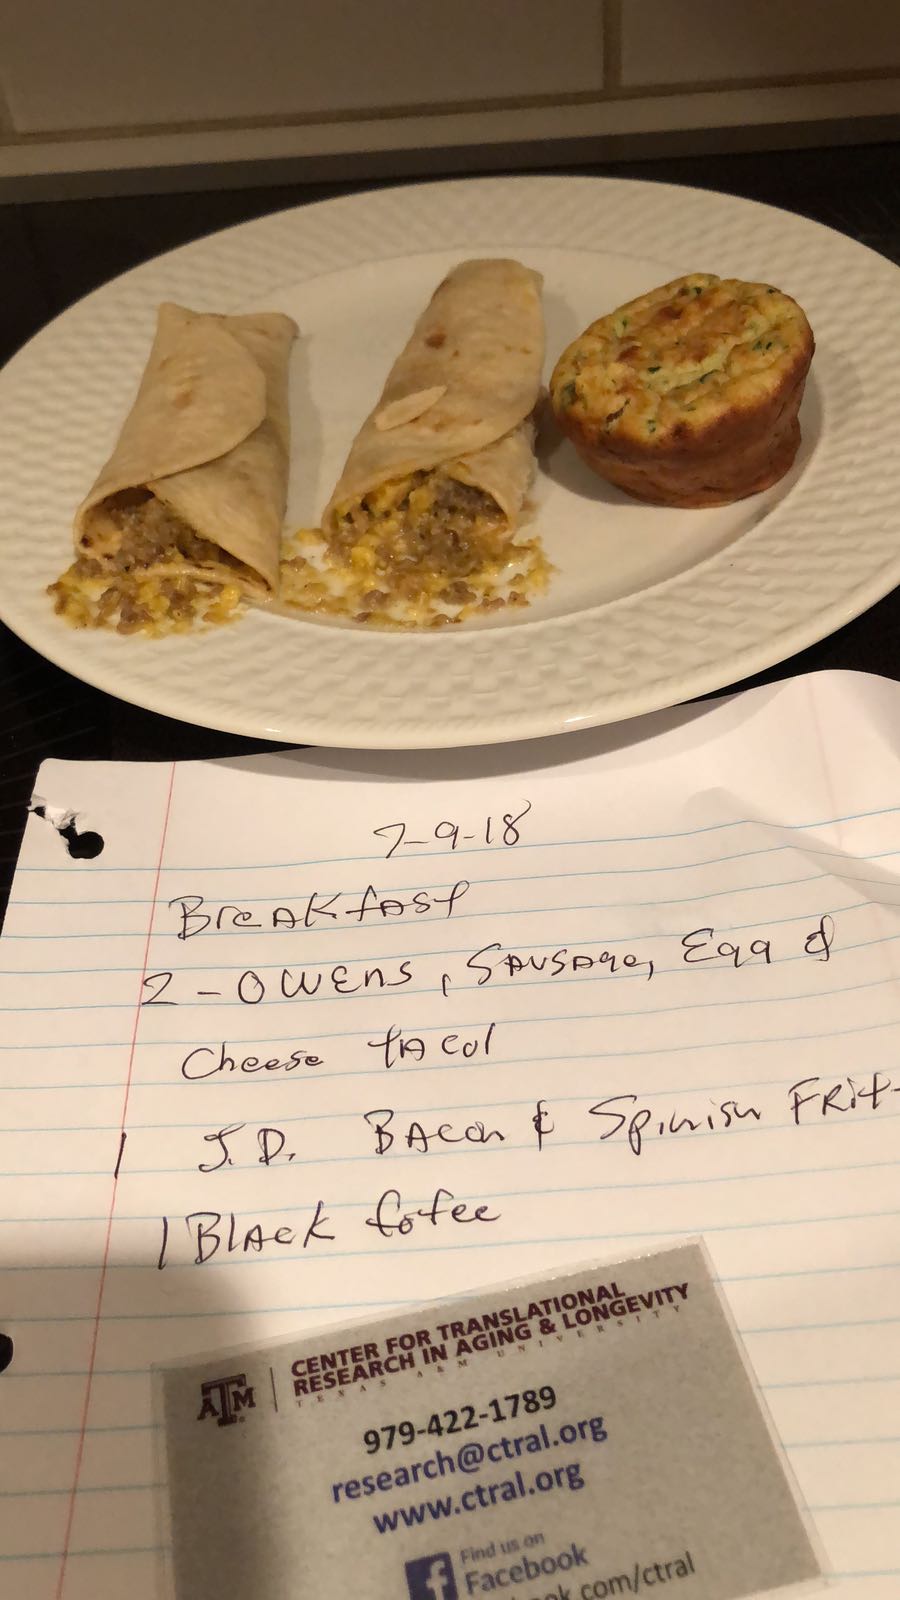 7-9-18
Breakfast
2 - OWENS, SAUSAge, Egg &
Cheese tAcol
1 J.D. BAcon & Spinish FRit-
1 BLAcK Cofee
ATM
CENTER FOR TRANSLATIONAL
RESEARCH IN AGING & LONGEVITY
TEXAS A&M UNIVERSITY
979-422-1789
research@ctral.org
www.ctral.org
f
Find us on
Facebook
ook.com/ctral